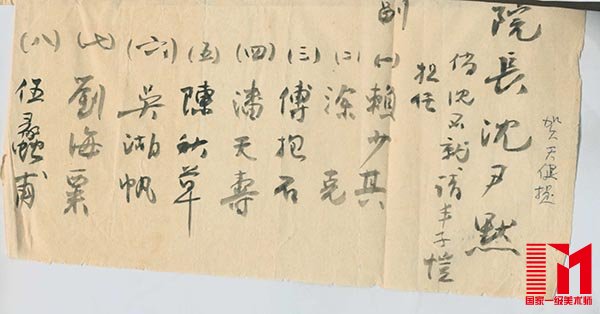 贺天健拟
院長沈尹默
倘沈不就請丰子愷
担任
副
(一)賴少其
(二)涂克
(三)傅抱石
(四)潘天壽
(五)陳秋草
(六)吳湖帆
(七)劉海粟
(八)伍蠡甫
国家一级美术师